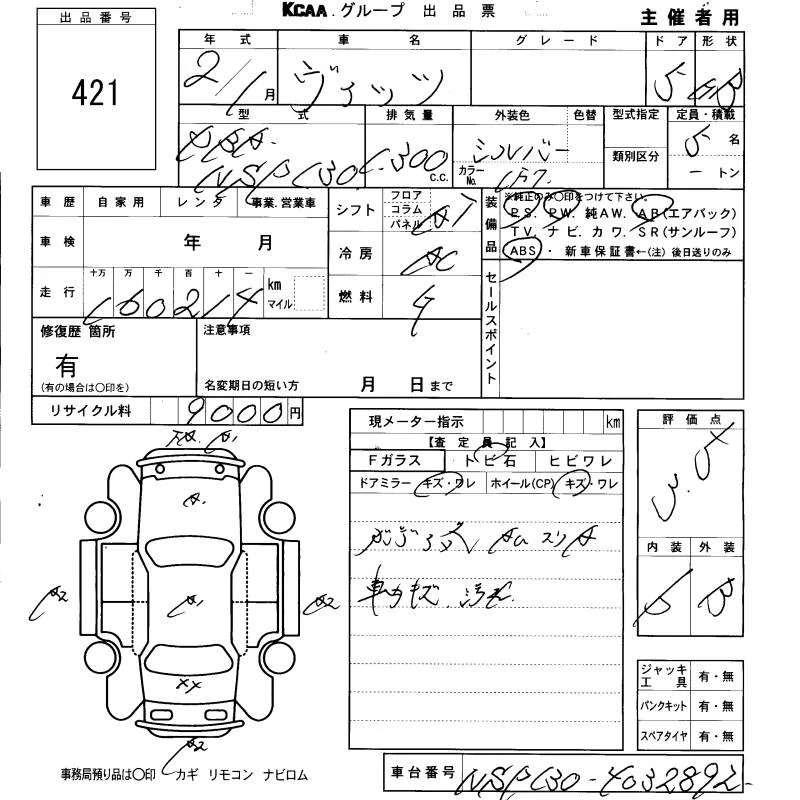 KCAA グループ 出品票
主催者用
出品番号
421
年式 車名 グレード ドア 形状
2/1月 ヴィッツ 5 HB
型式 排気量 外装色 色替 型式指定 定員・積載
DBA-
NSP130 1,300 c.c. シルバー 類別区分 5名
カラーNo. 1F7 ートン
車歴 自家用 レンタ 事業.営業車
シフト フロア コラム パネル AT
車検 年 月
冷房 AC
走行 十万 万 千 百 十 一 km マイル
160214
燃料 G
装備品 ※純正のみ〇印をつけて下さい。
P.S. P.W. 純AW. AB(エアバック)
T.V. ナビ. カワ. SR(サンルーフ)
ABS・ 新車保証書←(注) 後日送りのみ
セールスポイント
修復歴 箇所
有
(有の場合は〇印を)
注意事項
名変期日の短い方 月 日まで
リサイクル料 9000円
現メーター指示 km
【査定員記入】
Fガラス トビ石 ヒビワレ
ドアミラー キズ・ワレ ホイール(CP) キズ・ワレ
車内キズ.汚れ.
評価点
内装 外装
B
A1
A.
A2 A1 A2
XX
A2
ジャッキ工具 有・無
パンクキット 有・無
スペアタイヤ 有・無
事務局預り品は〇印 カギ リモコン ナビロム
車台番号 NSP130-4032892-